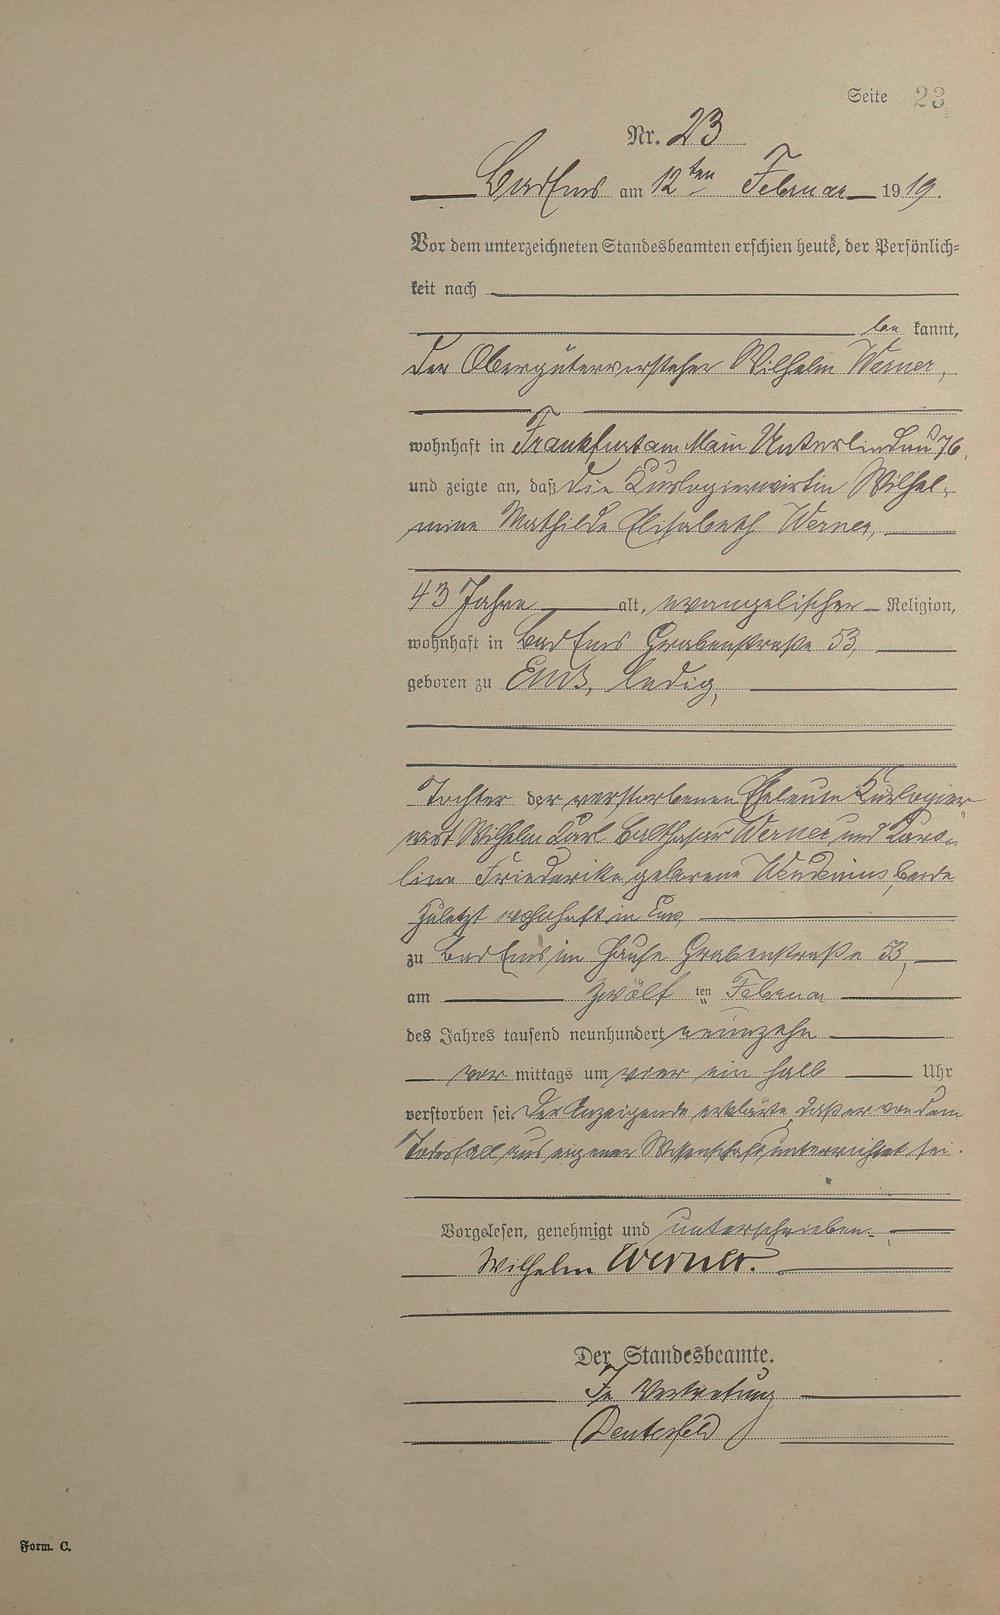 Seite 23
Nr. 23
Bad Ems am 12ten Februar 1919.
Vor dem unterzeichneten Standesbeamten erschien heute, der Persönlich=
keit nach
be kannt,
der Obergütervorsteher Wilhelm Werner,
wohnhaft in Frankfurt am Main Unterlindau 76,
und zeigte an, daß die Kurlogierwirtin Wilhel-
mine Mathilde Elisabeth Werner,
43 Jahre alt, evangelischer Religion,
wohnhaft in Bad Ems Grabenstraße 53,
geboren zu Ems, ledig,
Tochter der verstorbenen Eheleute Kurlogier
wirt Wilhelm Karl Balthasar Werner und Karo-
line Friederike geborene beide
zuletzt wohnhaft in Ems,
zu Bad Ems im Hause Grabenstraße 53,
am zwölf ten Februar
des Jahres tausend neunhundert neunzehn
vor mittags um vier ein halb Uhr
verstorben sei. Der Anzeigende erklärte, daß er von dem
Todesfall aus eigener Wissenschaft unterrichtet sei.
Vorgelesen, genehmigt und unterschrieben.
Wilhelm Werner.
Der Standesbeamte.
In Vertretung
Form. C.